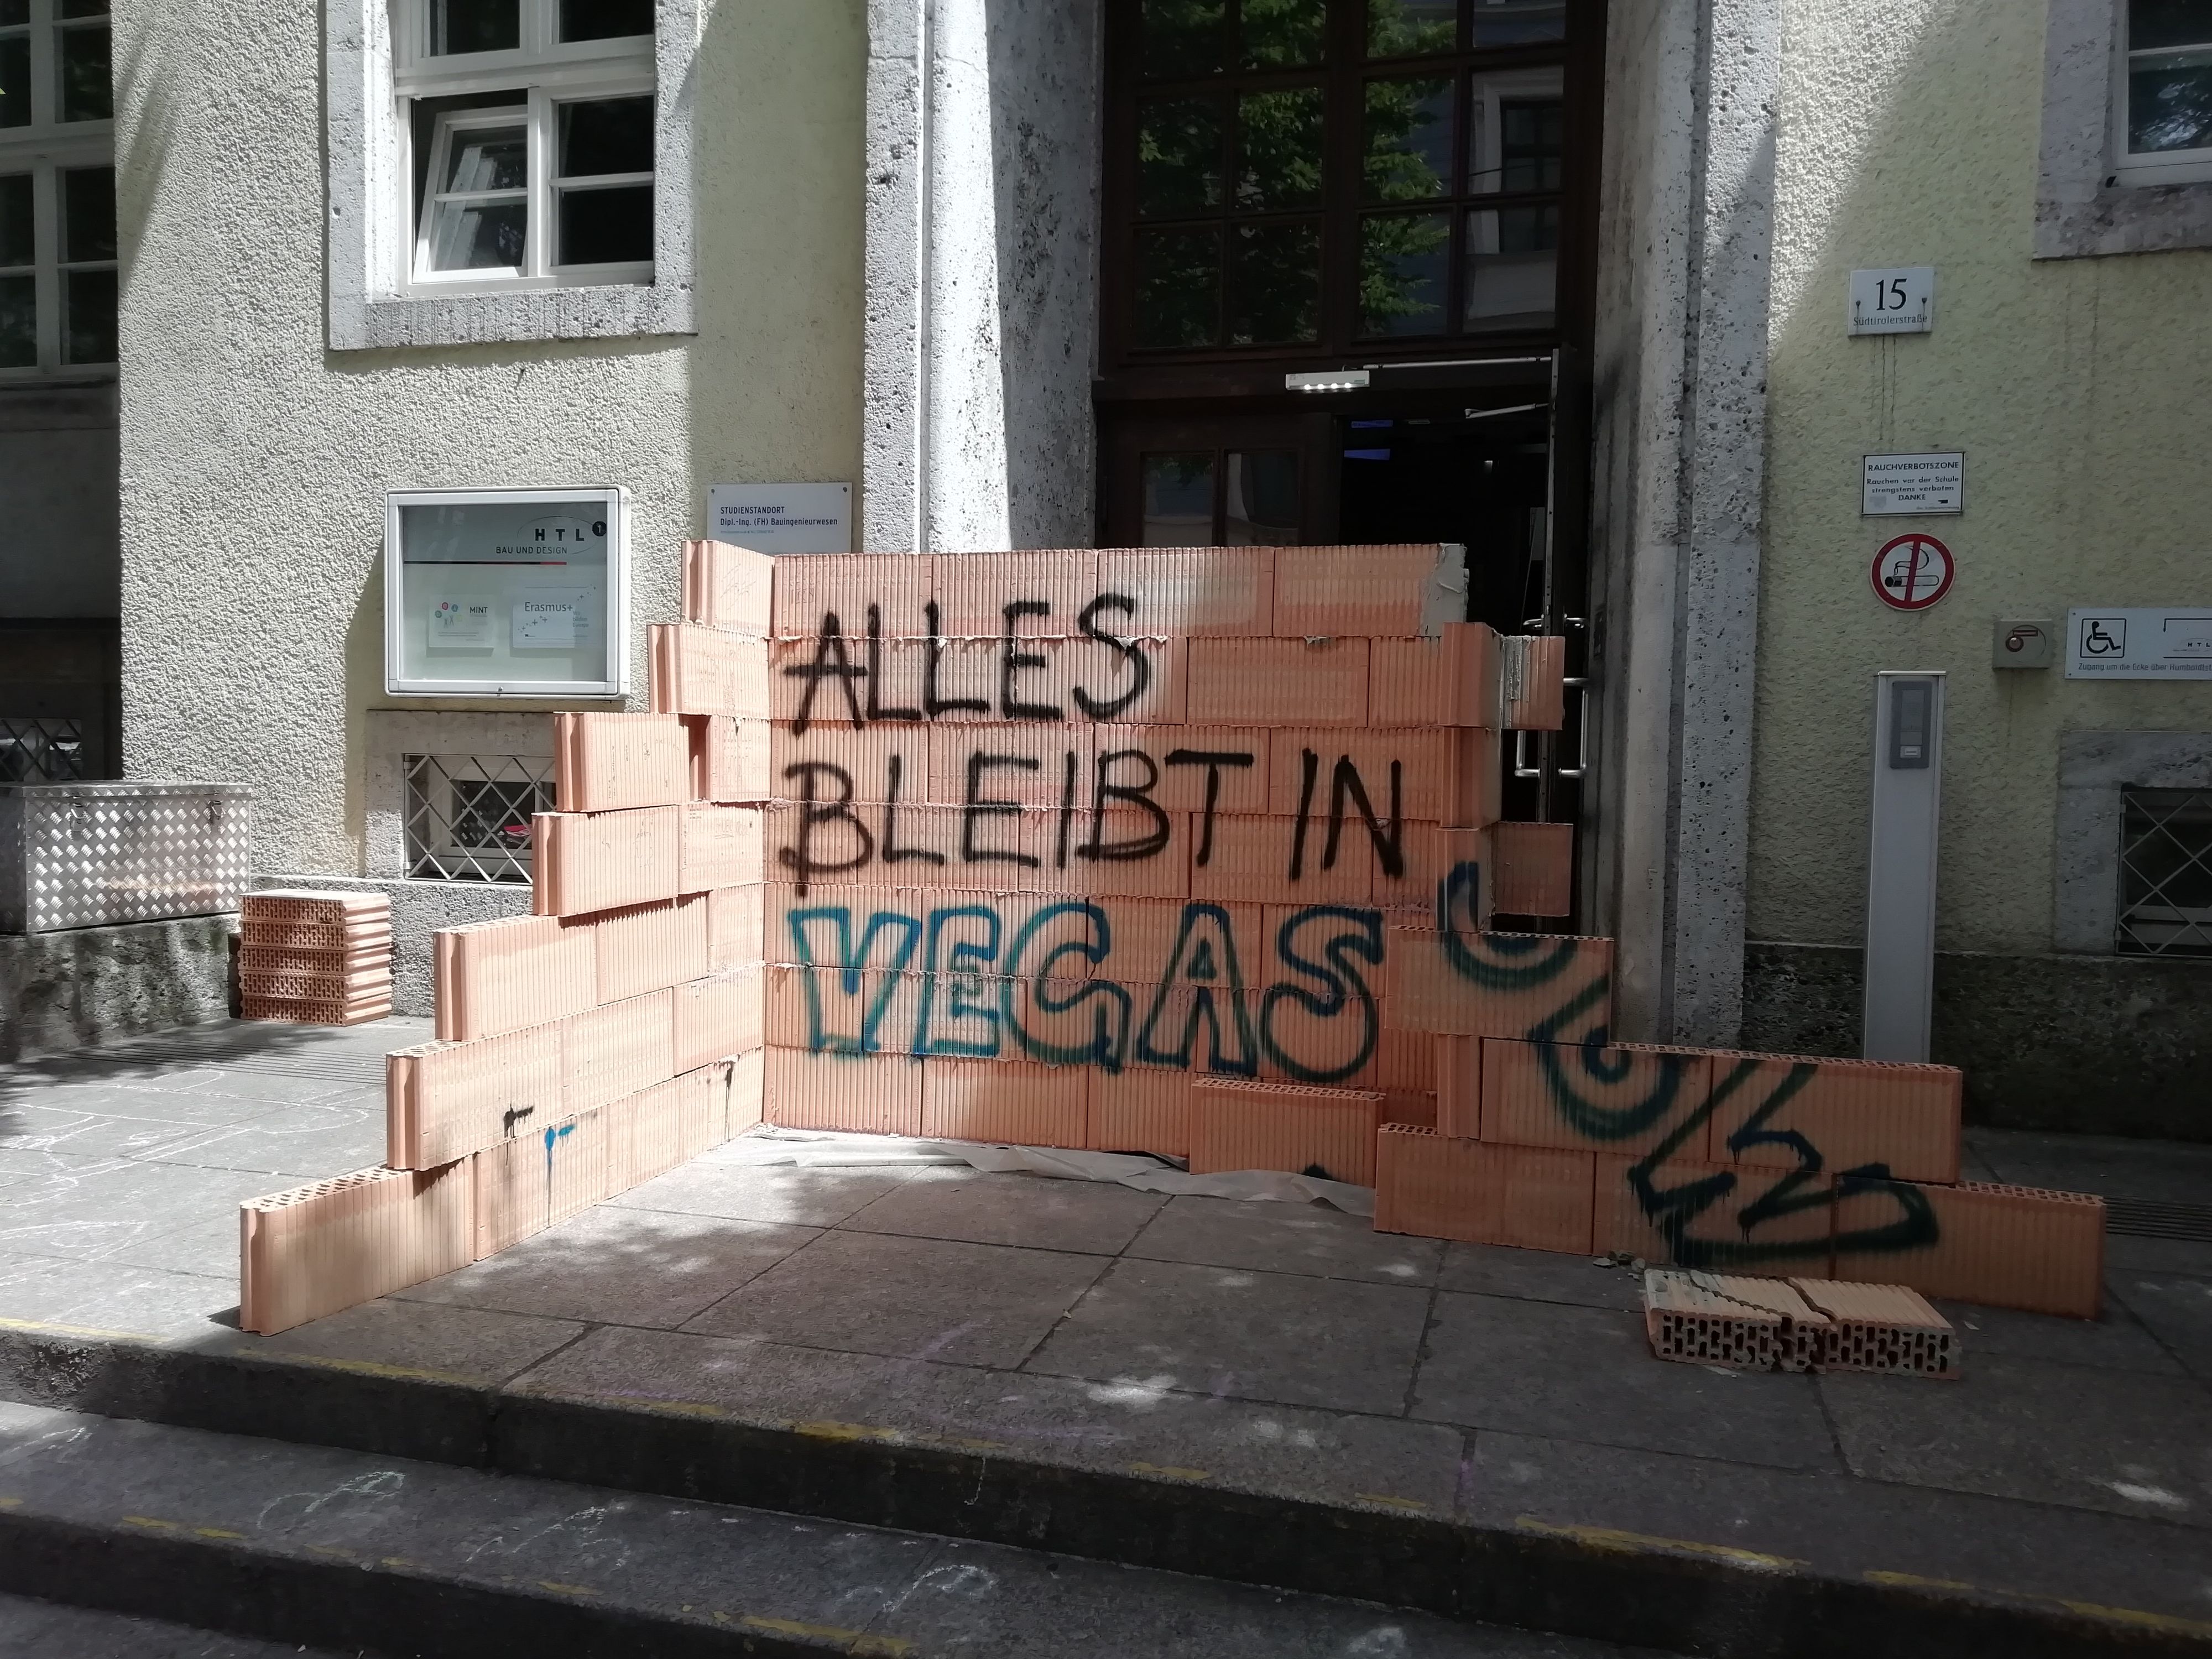 15
Südtirolerstraße
RAUCHVERBOTSZONE
Rauchen vor der Schule
strengstens verboten
DANKE
HTL1
BAU UND DESIGN
MINT
Erasmus+
STUDIENSTANDORT
Dipl.-Ing. (FH) Bauingenieurwesen
HTL
Zugang um die Ecke über
ALLES
BLEIBT IN
VEGAS